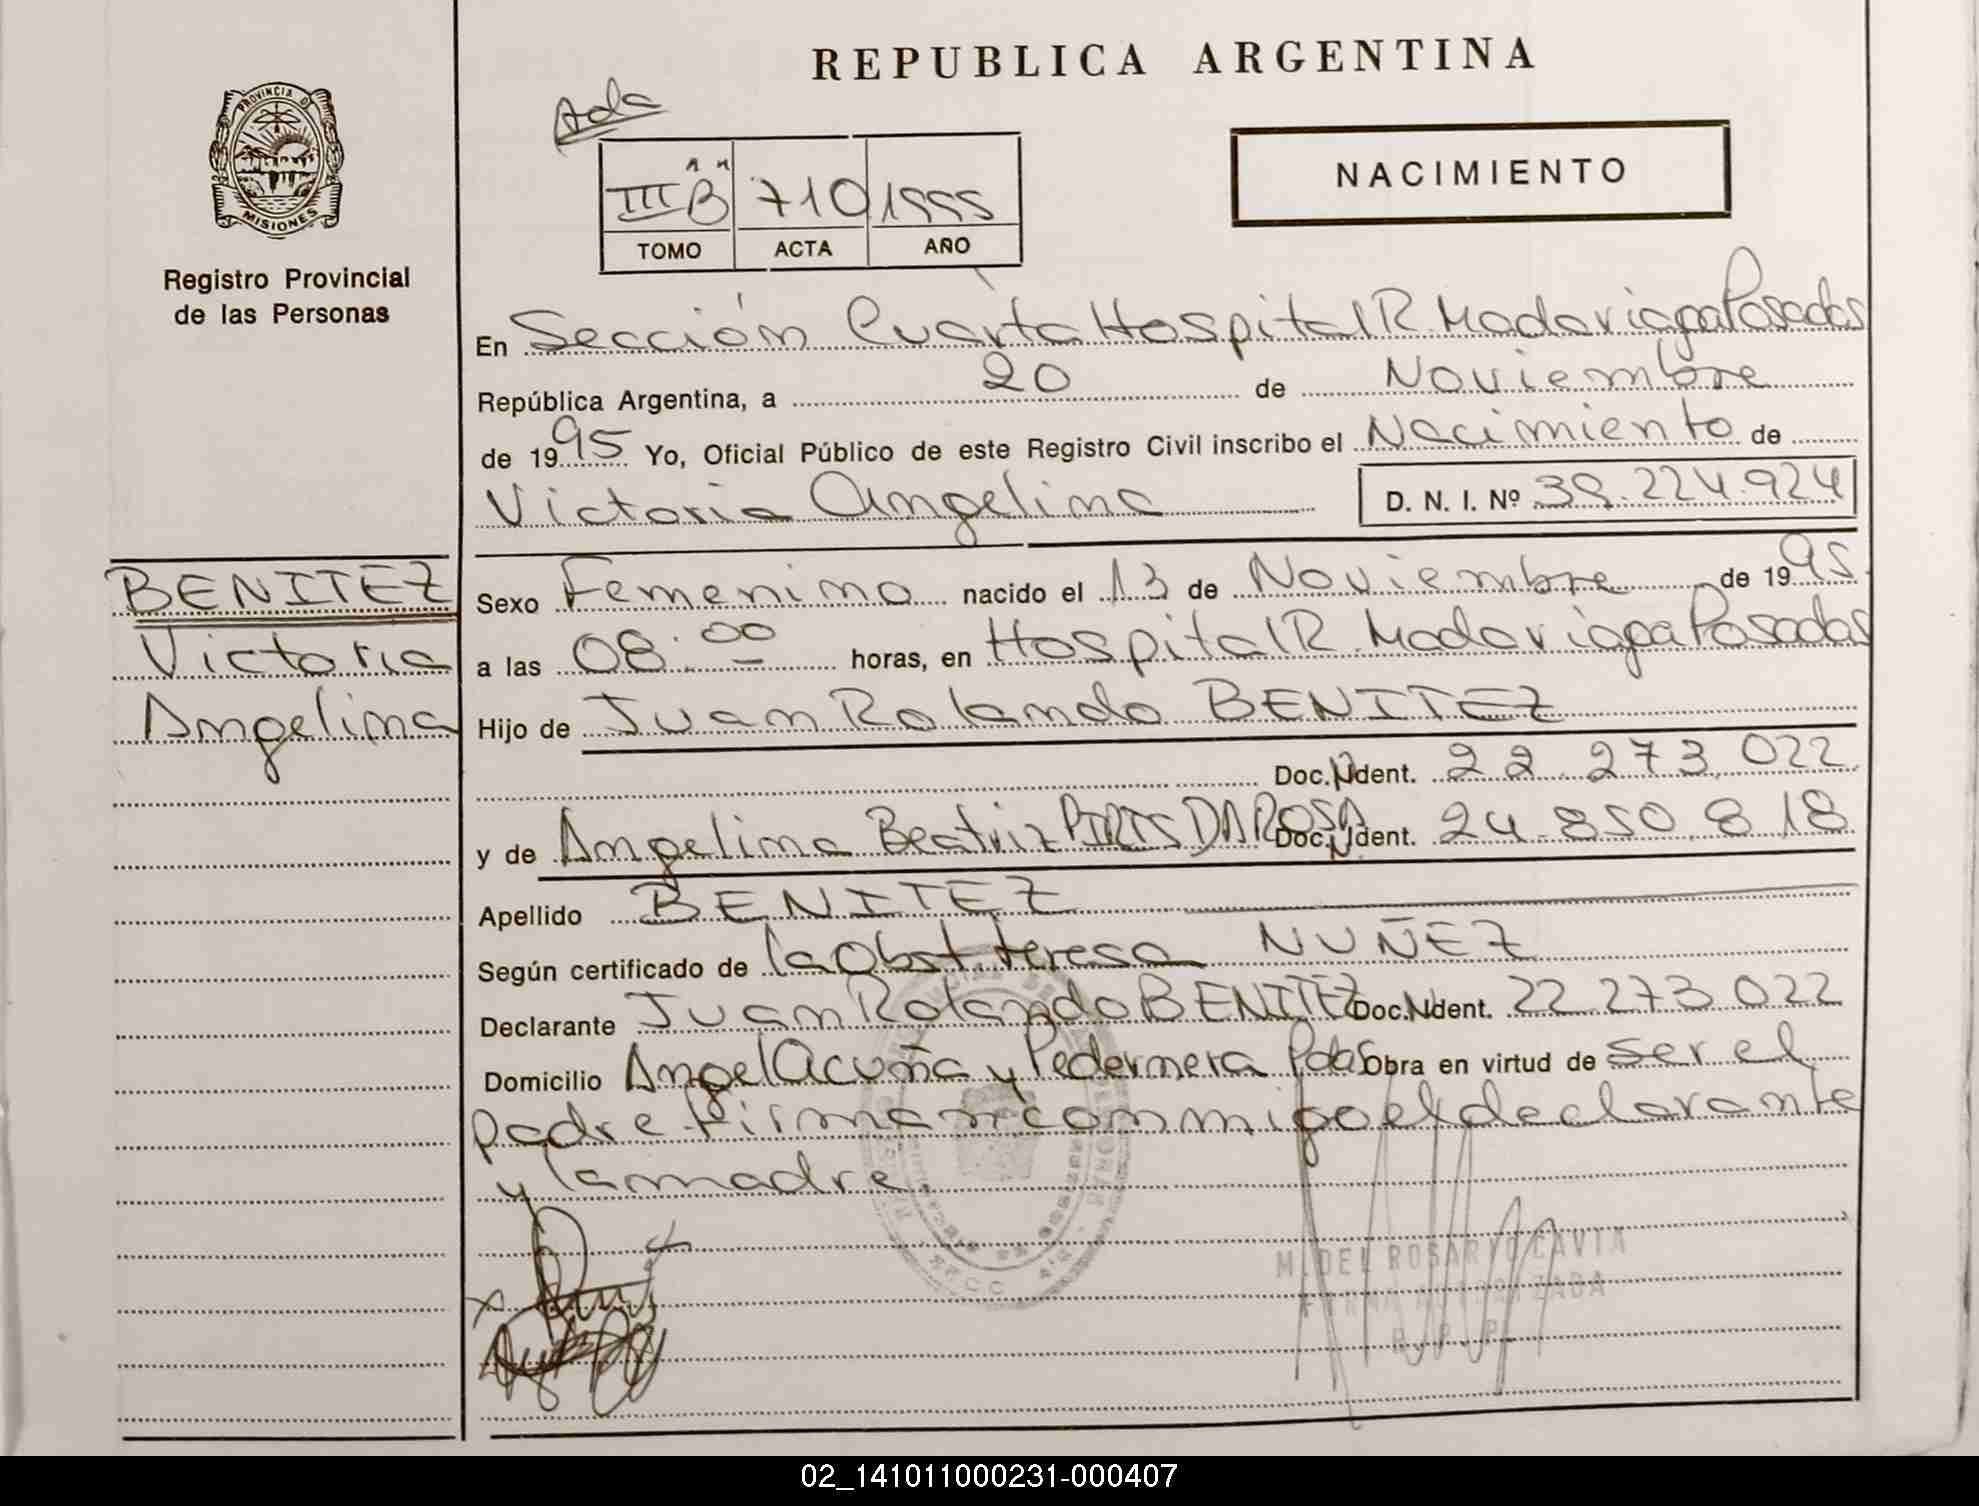 REPUBLICA ARGENTINA
PROVINCIA D
MISIONES
Registro Provincial
de las Personas
III "B" 710 1995
TOMO ACTA AÑO
NACIMIENTO
En Sección Cuarta Hospital R. Madariaga Posadas
República Argentina, a 20 de Noviembre
de 1995 Yo, Oficial Público de este Registro Civil inscribo el Nacimiento de
Victoria Angelina D. N. I. Nº 39.224.924
BENITEZ
Victoria
Angelina
Sexo Femenino nacido el 13 de Noviembre de 1995.
a las 08:00 horas, en Hospital R. Madariaga Posadas
Hijo de Juan Rolando BENITEZ
Doc. Ident. 22 273.022
y de Angelina Beatriz PIRIS DA ROSA Doc. Ident. 24.850.818
Apellido BENITEZ
Según certificado de la Obst. teresa NUÑEZ
Declarante Juan Rolando BENITEZ Doc. Ident. 22.273.022
Domicilio Angel Acuña y Pedernera Pdas Obra en virtud de ser el
padre firman conmigo el declarante
y la madre.
M. DEL ROSARIO
FIRMA AUTORIZADA
R. P. P.
02_141011000231-000407